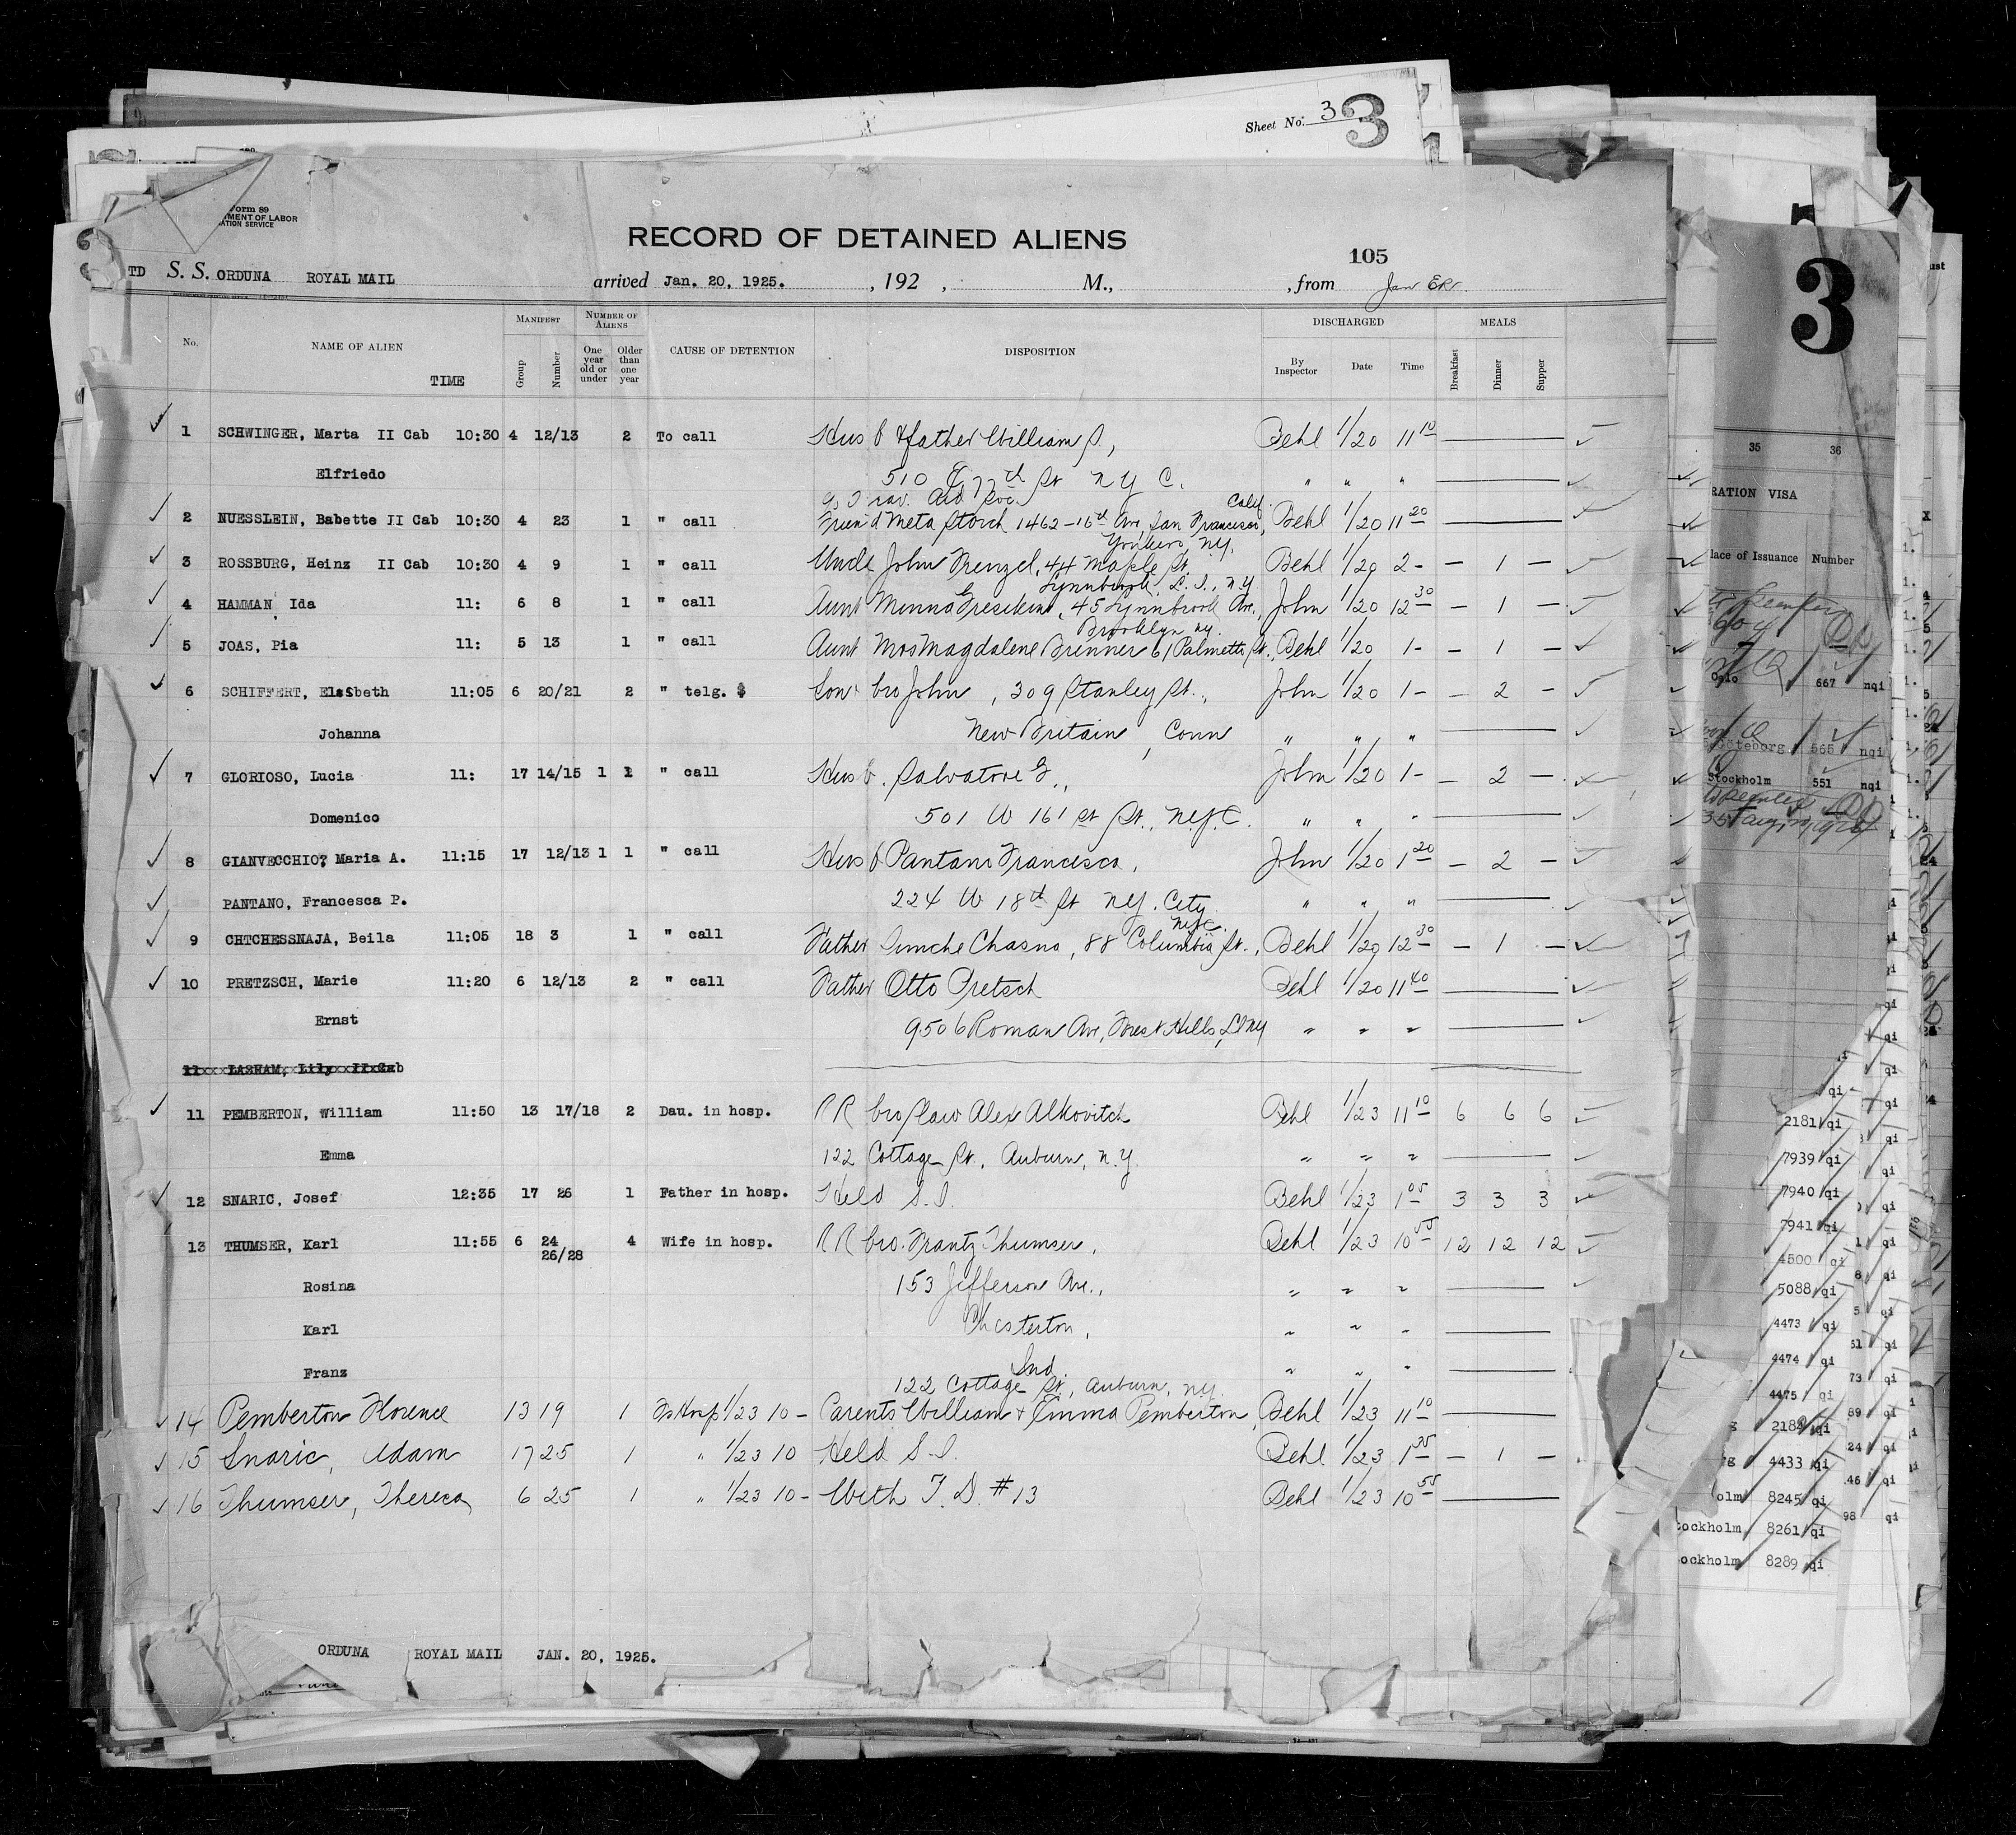 Sheet No. 3
3
Form 89
MENT OF LABOR
ATION SERVICE
RECORD OF DETAINED ALIENS
105
TD S. S. ORDUNA ROYAL MAIL arrived Jan. 20, 1925. , 192 , M., , from
No. NAME OF ALIEN TIME MANIFEST Group Number NUMBER OF ALIENS One year old or under Older than one year CAUSE OF DETENTION DISPOSITION DISCHARGED By Inspector Date Time MEALS Breakfast Dinner Supper
1 SCHWINGER, Marta II Cab 10:30 4 12/13 2 To call Husb & father William S., Behl 1/20 11 10
Elfriedo 510 E 77th St N Y C. " " "
Trav. Aid Soc. Calif.
2 NUESSLEIN, Babette II Cab 10:30 4 23 1 " call Friend Meta Storch 1462-16th Ave San Francisco, Behl 1/20 11 20
Yonkers N.Y.
3 ROSSBURG, Heinz II Cab 10:30 4 9 1 " call Uncle John Menzel, 44 Maple St. Behl 1/20 2- - 1 -
Lynnbrook, L. I., N.Y
4 HAMMAN Ida 11: 6 8 1 " call Aunt Minna, 45 Lynnbrook Ave., John 1/20 12 30 - 1 -
Brooklyn NY.
5 JOAS, Pia 11: 5 13 1 " call Aunt Mrs Magdalene Brenner 61 Palmetto St., Behl 1/20 1- - 1 -
6 SCHIFFERT, Elsibeth 11:05 6 20/21 2 " telg. $ Son & bro John, 309 Stanley St., John 1/20 1- - 2 -
Johanna New Britain, Conn " " "
7 GLORIOSO, Lucia 11: 17 14/15 1 1 " call Husb. Salvatore G., John 1/20 1- - 2 -
Domenico 501 W 161 st St., N.Y.C. " " "
8 GIANVECCHIO, Maria A. 11:15 17 12/13 1 1 " call Husb Pantano Francesco, John 1/20 1 20 - 2 -
PANTANO, Francesca P. 224 W 18th St NY. City " " "
NYC.
9 CHTCHESSNAJA, Beila 11:05 18 3 1 " call Father Chasno, 88 Columbia St., Behl 1/20 12 30 - 1 -
10 PRETZSCH, Marie 11:20 6 12/13 2 " call Father Otto Pretsch Behl 1/20 11 40
Ernst 9506 Roman Ave, Forest Hills, LI NY " " "
11 LASHAM, Lily II Cab
11 PEMBERTON, William 11:50 13 17/18 2 Dau. in hosp. R R bro/law Alex Alkovitch Behl 1/23 11 10 6 6 6
Emma 122 Cottage St., Auburn, N.Y. " " "
12 SNARIC, Josef 12:35 17 26 1 Father in hosp. Held S.I. Behl 1/23 1 05 3 3 3
13 THUMSER, Karl 11:55 6 24 26/28 4 Wife in hosp. R R bro. Frantz Thumser, Behl 1/23 10 55 12 12 12
Rosina 153 Jefferson Ave., " " "
Karl Chesterton, " " "
Franz Ind. " " "
122 Cottage St., Auburn, NY.
14 Pemberton Florence 13 19 1 Hosp 1/23 10- Parents William & Emma Pemberton, Behl 1/23 11 10
15 Snaric, Adam 17 25 1 " 1/23 10 Held S.I. Behl 1/23 1 35 - 1 -
16 Thumser, Theresa 6 25 1 " 1/23 10- With T.D. #13 Behl 1/23 10 55
ORDUNA ROYAL MAIL JAN. 20, 1925.
3
35 36
RATION VISA
lace of Issuance Number
Oslo 667 nqi
Goteborg 565 nqi
Stockholm 551 nqi
2181 qi
7939 qi
7940 qi
7941 qi
4500 qi
5088 qi
4473 qi
4474 qi
4475 qi
2182 qi
4433 qi
olm 8245 qi
tockholm 8261 qi
ockholm 8289 qi